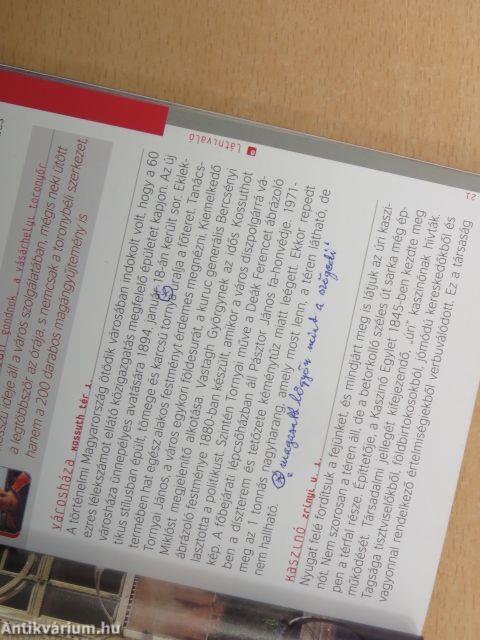 gondnok, a vásárhelyi toronyőr
hosszú ideje áll a város szolgálatában, mégis neki ütött
a legtöbbször az órája, s nemcsak a toronybéli szerkezet,
hanem a 200 darabos magángyűjtemény is
városháza Kossuth tér 1.
A történelmi Magyarország ötödik városában indokolt volt, hogy a 60
ezres lélekszámot ellátó közigazgatás megfelelő épületet kapjon. Az új
városháza ünnepélyes avatására 1894. január 18-án került sor. Eklek-
tikus stílusban épült, tömege és karcsú tornya uralja a főteret. Tanács-
termében hat egész alakos festményt érdemes megnézni. Kiemelkedő
Tornyai János, a város egykori földesurát, a kuruc generális Bercsényi
Miklóst megjelenítő alkotása. Vastagh Györgynek az idős Kossuthot
ábrázoló festménye 1880-ban készült, amikor a város díszpolgárrá vá-
lasztotta a politikust. Szintén Tornyai műve a Deák Ferencet ábrázoló
kép. A főbejárati lépcsőházban áll Pásztor János fa-honvédje. 1971-
ben a díszterem és tetőzete kéménytűz miatt leégett. Ekkor repedt
meg az 1 tonnás nagyharang, amely most lenn, a téren látható, de
nem hallható.
"magasabb légyön mint a szögedi"
kaszinó Zrínyi u. 1.
Nyugat felé fordítsuk a fejünket, és mindjárt meg is látjuk az úri kaszi-
nót. Nem szorosan a téren áll, de a betorkolló széles út sarka még ép-
pen a térfal része. Építtetője, a Kaszinó Egylet 1845-ben kezdte meg
működését. Társadalmi jellegét kifejezendő, „úri” kaszinónak hívták.
Tagsága tisztviselőkből, földbirtokosokból, jómódú kereskedőkből és
vagyonnal rendelkező értelmiségiekből verbuválódott. Ez a társaság
Látnivaló
21
Antikvárium.hu